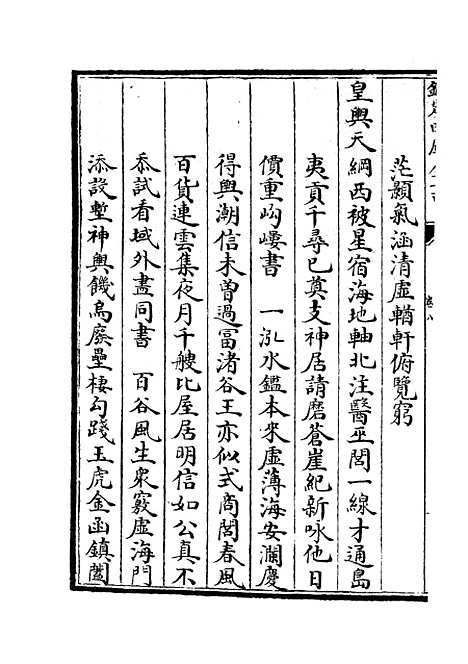 茫顥氣涵清虛輶軒俯覽窮
皇輿天綱西被星宿海地軸北注醫巫閭一線才通島
夷貢千尋已奠支神居請磨蒼崖紀新咏他日
價重岣嶁書　一泓水鑑本來虛薄海安瀾慶
得輿潮信未曾過富渚谷王亦似式商閭春風
百貨連雲集夜月千艘比屋居明信如公真不
忝試看域外盡同書　百谷風生衆竅虛海門
添設塹神輿饑烏廢壘棲勾踐玉虎金函鎮闔